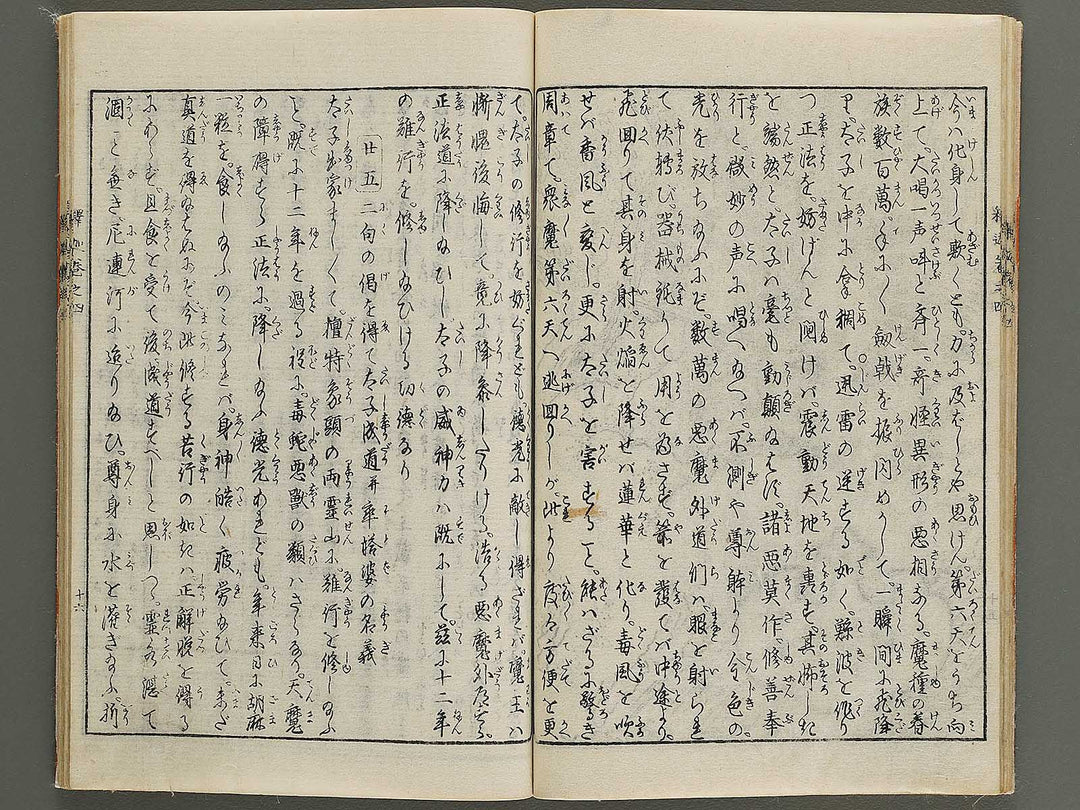 今は化身して欺くとも。力に及ばじとや思けん。第六天をうち向
上て。大唱一声叫と斉一。奇怪異形の悪相ある。魔種の眷
族数百萬。手に〳〵剱戟を振閃めかして。一瞬間に飛降
り。太子を中に拿稠て。迅雷の逆する如く。懸波を作り
つ正法を妨げんと鬩けば。震動天地を裏も。其怖しき
を端然と太子は毫も動顛給はず。諸悪莫作。修善奉
行と。微妙の声に唱へ給へば。不測や尊躰より金色の。
光を放ちなふにぞ。数萬の悪魔外道們は。眼を射られ
て伏轉び。器械鈍りて用を為さず。箭を護てバ中途より。
飛回りて其身を射。火焔を降せば蓮華と化り。毒風を吹
せば香風と変じ。更に太子を害すること。能はざるに驚き
周章て。衆魔第六天へ迯回りしが。此より度る方便を更
て。太子の修行を妨ぐれども。徳光に敵し得ざれば。魔王は
慚愧後悔して。竟に降参したりける。浩る悪魔外道等る。
正法道に降しぬひし。太子の威神力は既にして。茲に十二年
の難行を。修しなひける功徳なり
廿五 二句の偈を得て太子成道并卒塔婆の名義
太子出家まし〳〵て。檀特象頭の両霊山に。難行を修しなふ
こと。既に十二年を過る程に。毒蛇悪獣の類はさらなり。天魔
の障碍すら正法に。降しなふ徳光あれども。年来日に胡麻
一粒を。食しなふのみなれば。身神皓く疲労ぬひて。未だ
真道を得ぬはぬにぞ今此修する苦行の如きは正解脱を得る
にあらず。且食を受て後。成道すべしと思しつ。霊水湛て
涸こと無き。尼連河に造り給ひ。尊身に水を潅ぎなふ。折